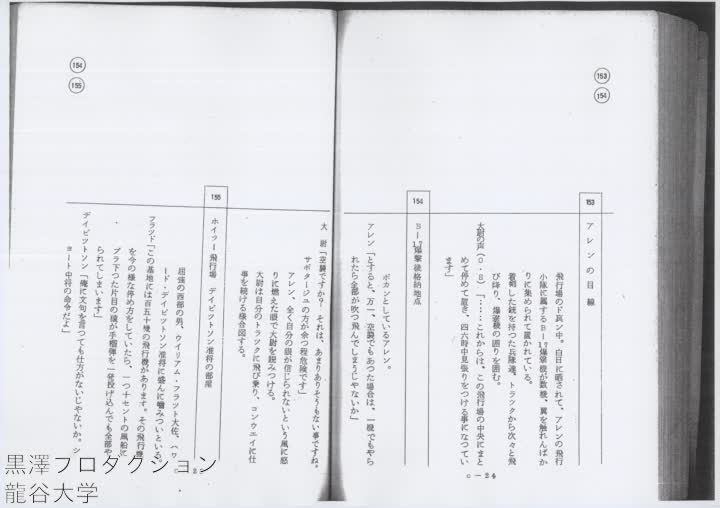 153
154
153
アレンの目線
飛行場のド真ン中。白日に晒されて、アレンの飛行
小隊に属するB—17爆撃機が数機、翼を触れんばか
りに集められて置かれている。
着剣した銃を持つた兵隊達、トラックから次々と飛
び降り、爆撃機の囲りを囲む。
大尉の声（O・B）「……これからは、この飛行場の中央にまと
めて停めて置き、四六時中見張りをつける事になつてい
ます」
154
B—17爆撃機格納地点
ポカンとしているアレン。
アレン「とすると、万一、空襲でもあつた場合は、一機でもやら
れたら全部が吹つ飛んでしまうじやないか」
c—24
154
155
大　尉「空襲ですか？それは、あまりありそうもない事ですね。
サボタージユの方が余つ程危険です」
アレン、全く自分の眼が信じられないという風に怒
りに燃えた眼で大尉を睨みつける。
大尉は自分のトラツクに飛び乗り、コンウエイに仕
事を続ける様合図する。
155
ホイラー飛行場　デイビツトソン准将の部屋
屈強の西部の男、ウイリアム・フラツト大佐、ハワ
ード・デイビツトソン准将に盛んに噛みついている。
フラツト「この基地には百五十機の飛行機があります。その飛行機
を今の様な停め方をしていたら、一つ十セントの風船に
ブラ下つた片目の猿が手榴弾を一発投げ込んでも全部や
られてしまいます」
デイビツトソン「俺に文句を言つても仕方がないじやないか。シ
ヨート中将の命令だよ」
c
2
黒澤プロダクション
龍谷大学